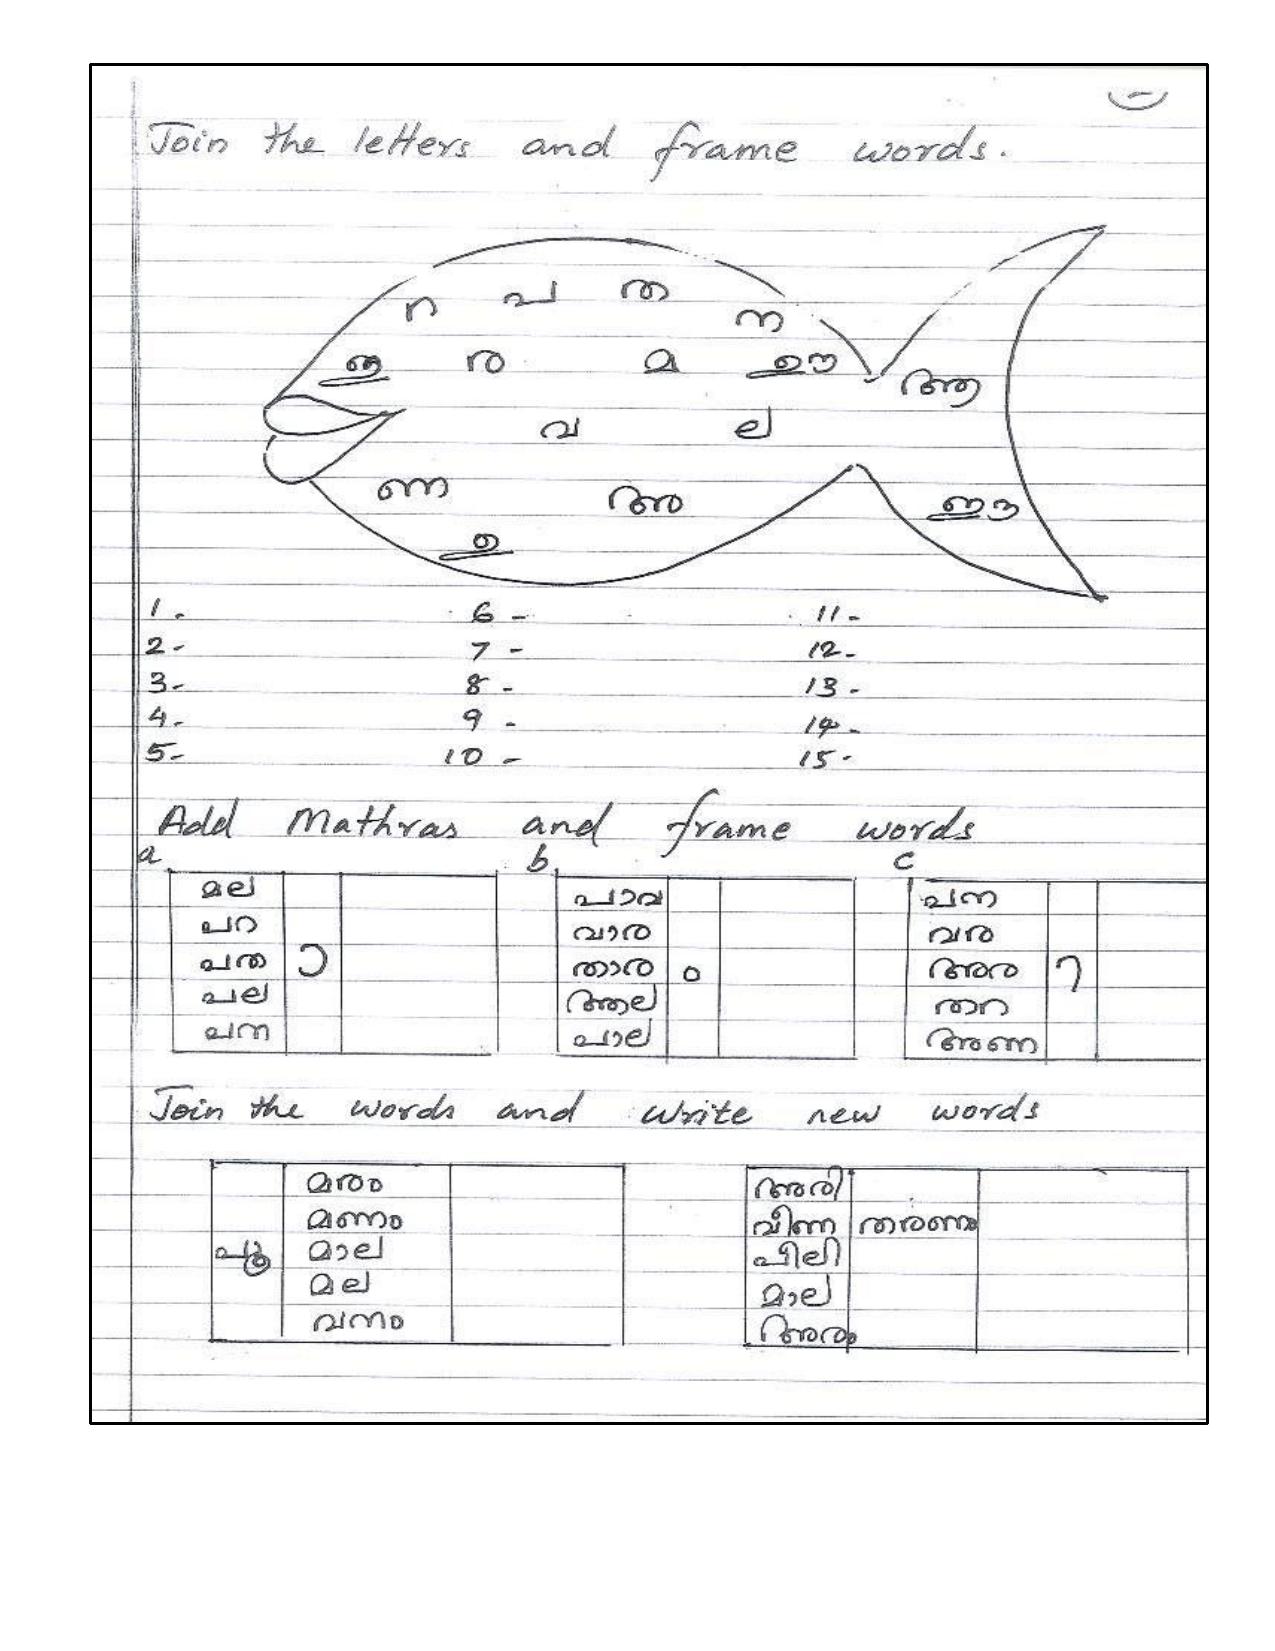 Join the letters and frame words.
റ പ ത ന
ഇ ര മ ഊ ആ
വ ല
ണ അ ഈ
ഉ
1- 6- 11-
2- 7- 12-
3- 8- 13-
4- 9- 14-
5- 10- 15-
Add Mathras and frame words
a b c
മല പാവ പന
പറ വാര വര
പത ാ താര ം അര ി
പല ആല തറ
പന പാല അണ
Join the words and write new words
മരം അരി
മണം വീണ തരണം
പൂ മാല പീലി
മല മാല
വനം അരം